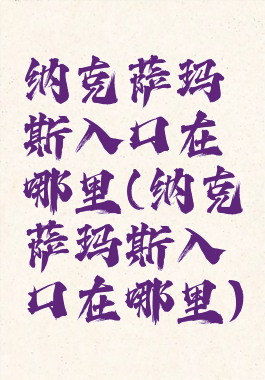 纳克萨玛
斯入口在
哪里(纳克
萨玛斯入
口在哪里)